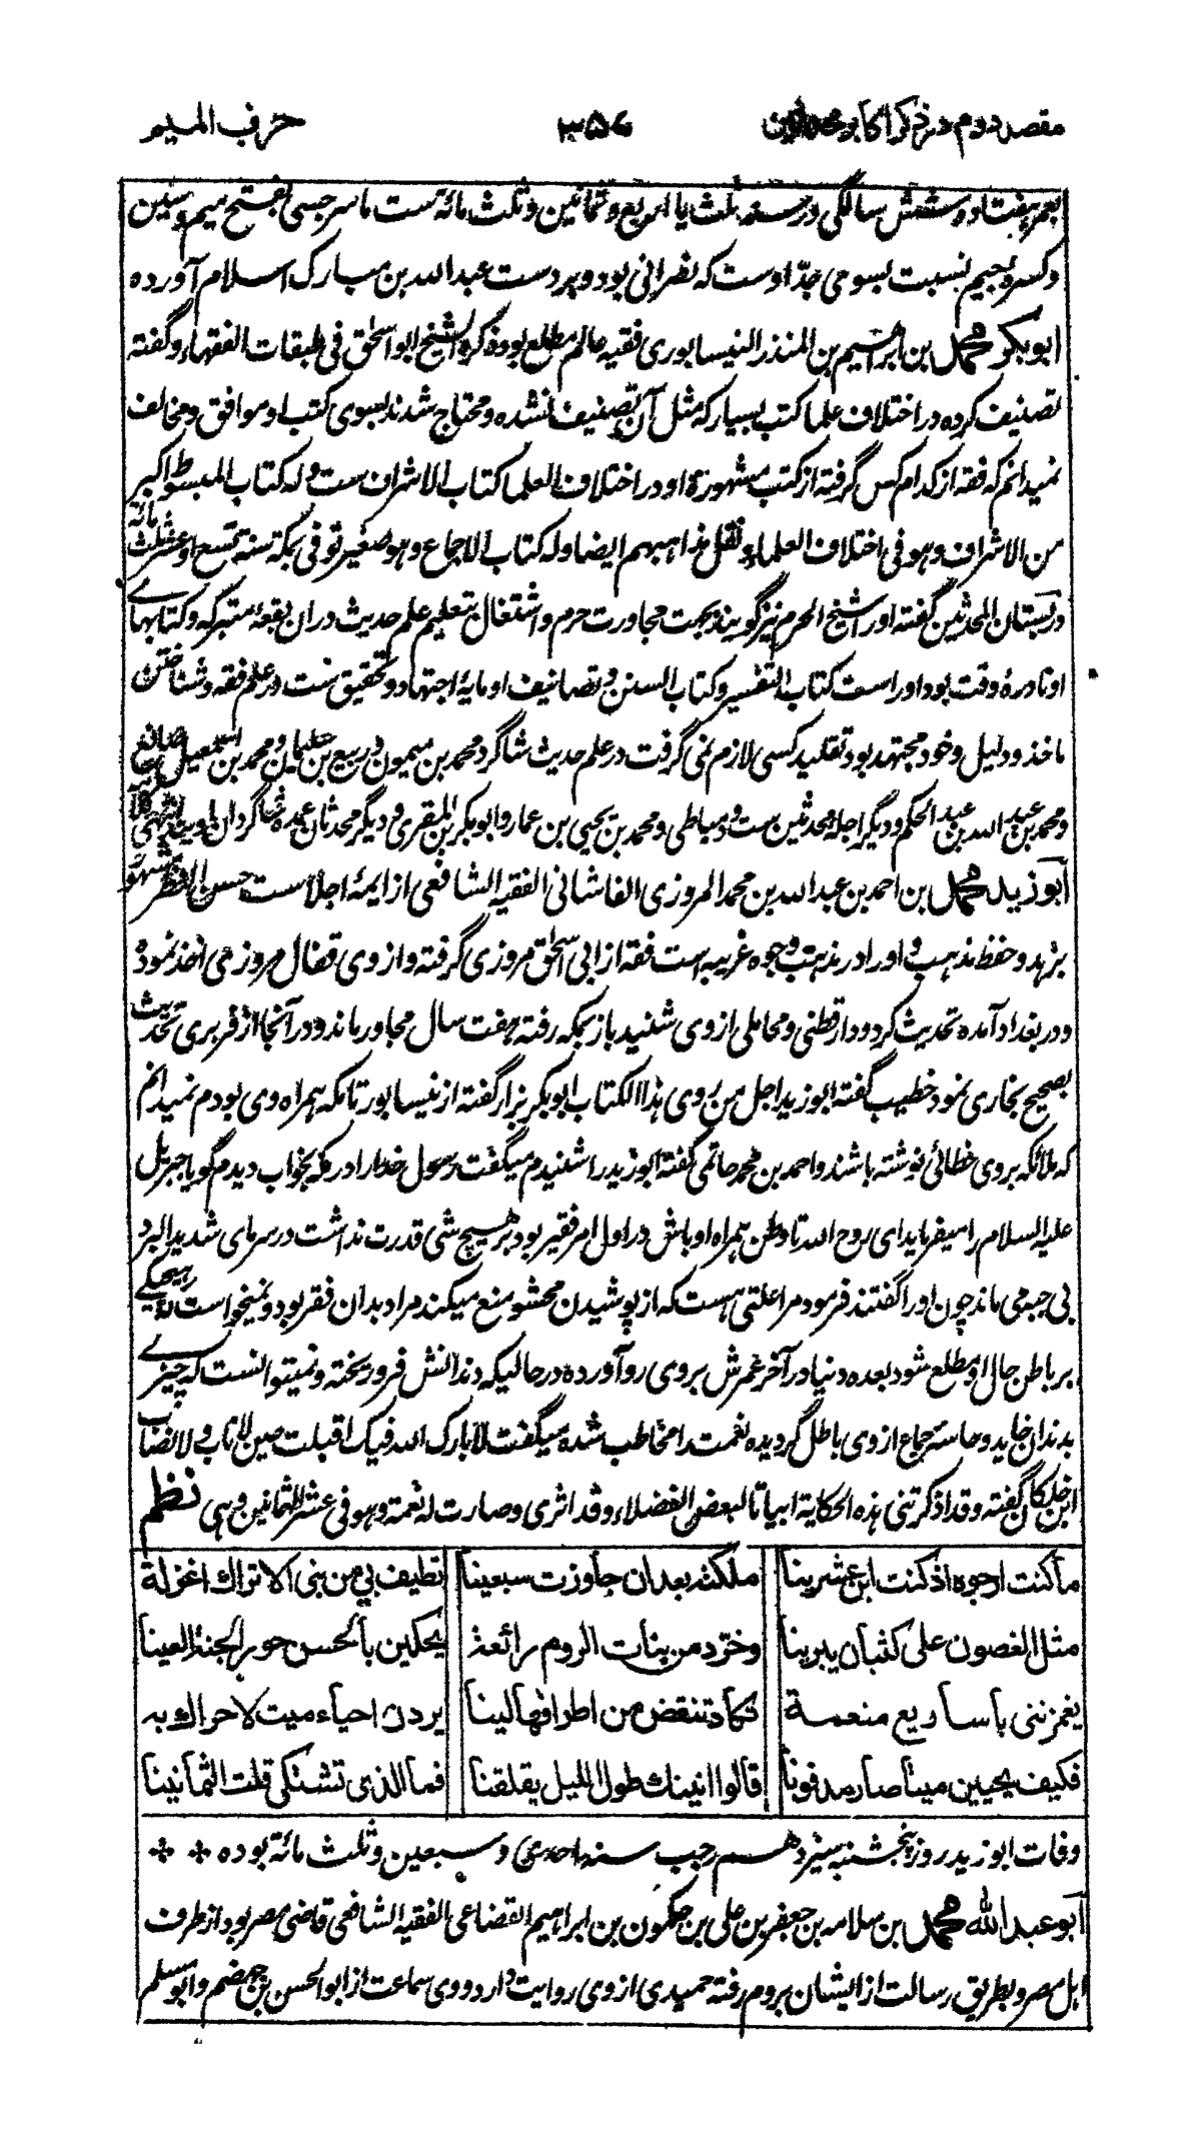 مقصد دوم در ذکر اکابر محدثین
۳۵۷
حرف المیم
بعمر هفتاد و شش سالگی در سنه ثلث یا اربع و ثمانین و ثلث مائة ست ماسرجسی بفتح میم و سین
و کسره جیم نسبت بسوی جدّ اوست که نصرانی بود و بر دست عبدالله بن مبارک اسلام آورده
ابوبکر محمد بن ابراهیم بن المنذر النیسابوری فقیه عالم مطلع بوده ذکره الشیخ ابو اسحق فی طبقات الفقهاء و گفته
تصنیف کرده در اختلاف علما کتب بسیار که مثل آن تصنیف نشده و محتاج شدند بسوی کتب او موافق و مخالف
نمیدانم که فقه از کدام کس گرفته از کتب مشهوره او در اختلاف العلما کتاب الاشراف ست و له کتاب المبسوط اکبر
من الاشراف و هو فی اختلاف العلماء و نقل مذاهبهم ایضا و له کتاب الاجماع و هو صغیر توفی بمکة سنة تسع او عشر و ثلث مائة
در بستان المحدثین گفته او را شیخ الحرم نیز گویند بجهت مجاورت حرم و اشتغال بتعلیم علم حدیث در ان بقعهٔ متبرکه و کتابهاے
او نادرهٔ وقت بود او راست کتاب التفسیر و کتاب السنن و تصانیف او مایهٔ اجتهاد و تحقیق ست در علم فقه و شناختن
ماخذ و دلیل و خود مجتهد بود تقلید کسی لازم نمی گرفت در علم حدیث شاگرد محمد بن میمون و ربیع بن سلیمان و محمد بن اسمعیل صائغ
و محمد بن عبد الله بن عبد الحکم و دیگر اجله محدثین ست و دمیاطی و محمد بن یحیی بن عمار و ابوبکر بن المقری و دیگر محدثان عمده شاگردان اویند
ابو زید محمد بن احمد بن عبدالله بن محمد المروزی الفاشانی الفقیه الشافعی از ایمهٔ اجلاست حسن النظر مشهور
بزهد و حفظ مذهب و او را در مذهب وجوه غریبه است فقه از ابی اسحق مروزی گرفته و از وی قفال مروزی اخذ نموده
و در بغداد آمده تحدیث کرد و دارقطنی و محاملی از وی شنید باز بمکه رفته هفت سال مجاور ماند و در آنجا از فربری تحدیث
بصحیح بخاری نمود خطیب گفته ابو زید اجل من روی هذا الکتاب ابوبکر بزار گفته از نیسابور تا مکه همراه وی بودم نمیدانم
که ملائکه بروی خطائی نوشته باشند و احمد بن محمد حاتمی گفته ابو زید را شنیدم میگفت رسول خدا را در مکه بخواب دیدم گویا جبریل
علیه السلام را میفرماید ای روح الله تا وطن همراه او باش در اول امر فقیر بود بر هیچ شی قدرت نداشت در سرمای شدید البرد
بی جبه می ماند چون او را گفتند فرمود مرا علتی هست که از پوشیدن محشو منع میکند مراد بدان فقر بود و نمیخواست که هیچکے
بر باطن حال او مطلع شود بعده دنیا در آخر عمرش بروی رو آورده در حالیکه دندانش فرو ریخته و نمیتوانست که چیزے
بدندان خاید و حاسه جماع از وی باطل گردیده نعمت را مخاطب شده میگفت لا بارک الله فیک اقبلت حین لا ناب و لا نصاب
ابن خلکان گفته و قد اذکرتنی هذه الحکایة ابیاتا لبعض الفضلاء و قد اثری و صارت له نعمة و هو فی عشر الثمانین و هی نظم
ما کنت ارجوه اذ کنت ابن عشرینا ملکته بعد ان جاوزت سبعینا تطیف بی من بنی الاتراک اغزلة
مثل الغصون علی کثبان یبرینا وخرّد من بنات الروم رائعة یحکین بالحسن حور الجنة العینا
یغمزننی باساریع منعمة تکاد تنقض من اطرافها لینا یردن احیاء میت لا حراک به
فکیف یحیین میتا صار مدفونا قالوا انینک طول اللیل یقلقنا فما الذی تشتکی قلت الثمانینا
وفات ابو زید روز پنجشنبه سیزدهم رجب سنه احدی و سبعین و ثلث مائة بوده
ابو عبد الله محمد بن سلامه بن جعفر بن علی بن حکمون بن ابراهیم القضاعی الفقیه الشافعی قاضی مصر بود از طرف
اهل مصر و بطریق رسالت از ایشان بروم رفته حمیدی از وی روایت دارد و وی سماعت از ابو الحسن بن جهضم و ابو مسلم